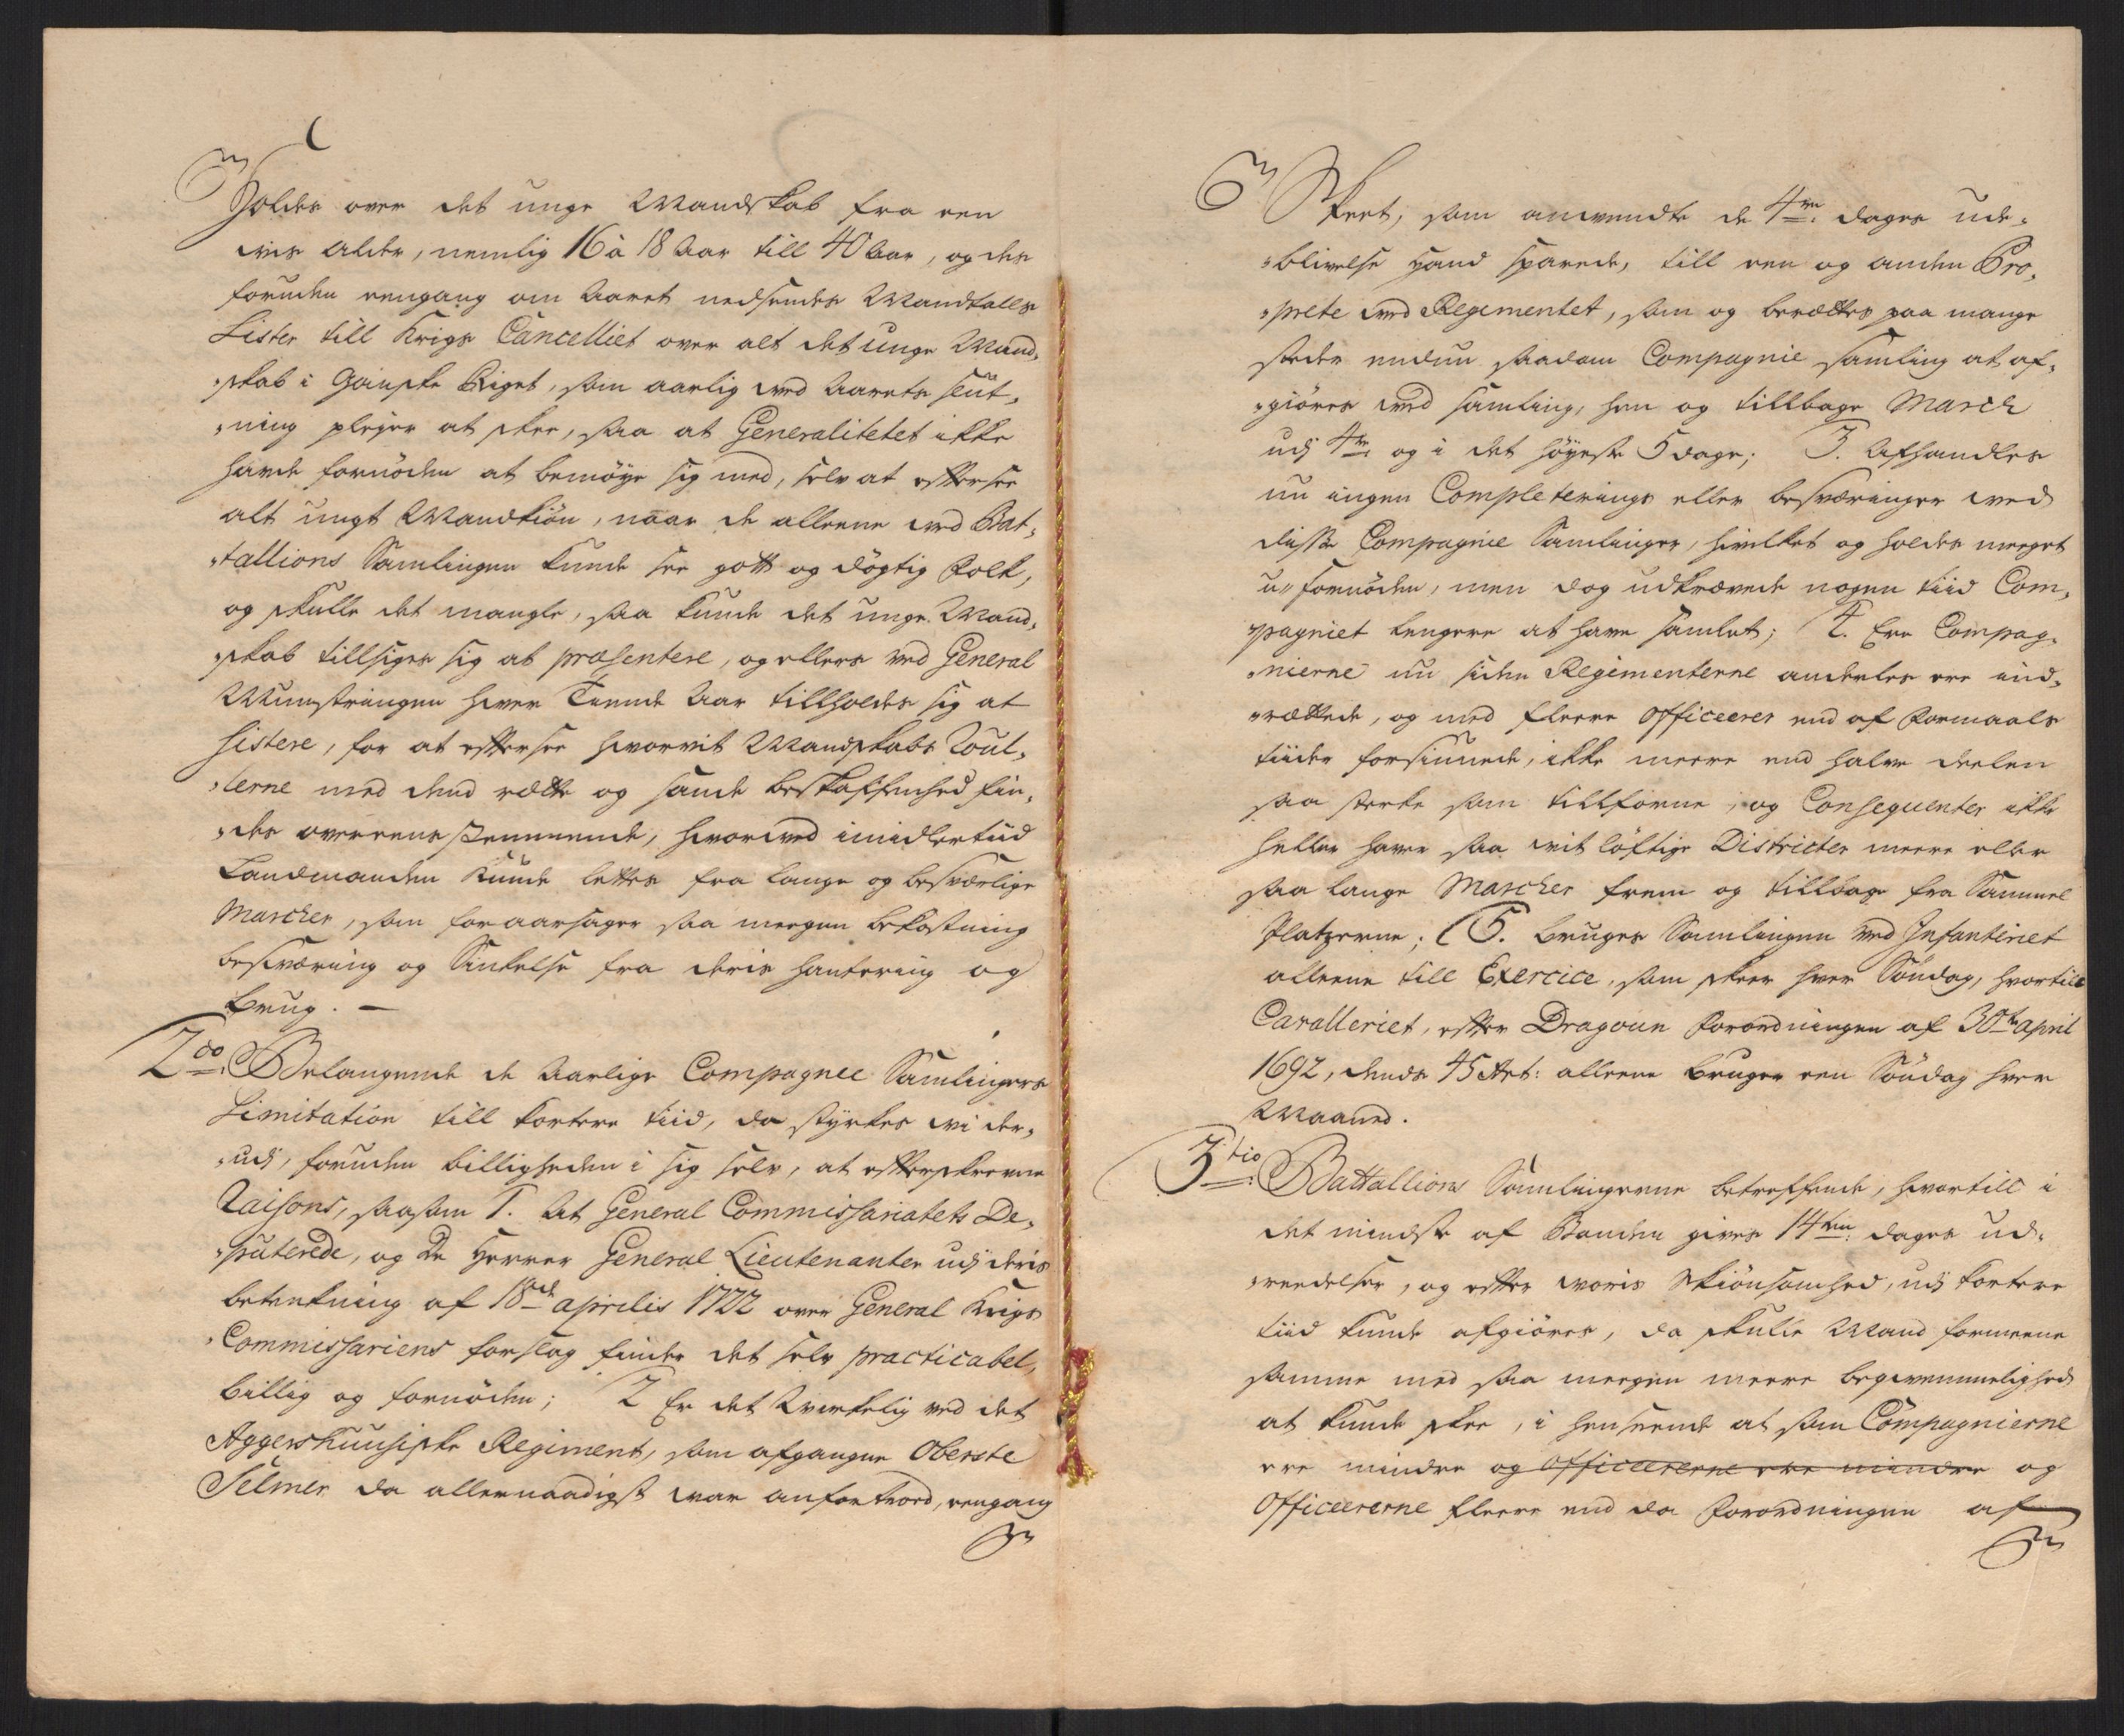 Holdes over det unge Mandskab fra een
vis alder, nemlig 16 à 18 Aar till 40 Aar, og des
foruden eengang om Aaret nedsendes Mandtalls
Lister till Krigs Cancelliet over alt det unge Mand„
„skab i gandske Riget, som aarlig ved Aarets slut„
„ning plejer at skee, saa at Generalitetet ikke
hafde fornöden at bemöye sig med, selv at effter see
alt ungt Mandkiön, naar de alleene ved Bat„
„tallions Samlingen kunde see gott og dögtig Folk,
og skulle det mangle, saa kunde det unge Mand„
„skab tillsiges sig at præsentere, og ellers ved General
Mynstringen hver Tiende Aar tillholdes sig at
sistere, for at effter see hvorvit Mandskabs Roul„
„lerne med dend rætte og sande beskaffenhed fin„
„des overeensstemmende, hvorved imidlertiid
Landmanden kunde lettes fra lange og besværlige
Marcher, som foraarsager saa meegen bekostning
besværing og Sinkelse fra deris handtering og
brug. —
2do. Belangende de Aarlige Compagnie Samlingers
Limitation till kortere tiid, da styrkes vi der„
„udj, foruden billigheden i sig selv, at effterskrevne
Raisons, saasom 1. At General Commissariatets De„
„puterede, og De Herrer General Lieutenanter udj deris
betenkning af 18de aprilis 1722 over General Krigs
„Commissariens forslag finder det selv practicabel,
billig og fornöden; 2 Er det Virkelig ved det
Aggershuusiske Regiment, som afgangne Oberste
Selmer da allernaadigst var anfortroed, eengang
Skeet, som anvendte de 4re. dages ude„
„blivelse Hand sparede, till een og anden Pro„
„prete ved Regimentet, som og berættes paa mange
steder endnu saadan Compagnie samling at af„
„giöres med samling, hen og tillbage March
udj 4re. og i det höyeste 5 dage; 3. Afhandles
nu ingen Completerings eller besværinger ved
disse Compagnie Samlinger, hvilket og holdes meeget
u„fornöden, men dog udkrævede nogen tiid Com„
„pagniet lengere at have samlet; 4. Ere Compag„
„nierne nu siden Regimenterne anderles ere ind„
„rættede, og med fleere Officeerer end af Formaals
tiider forsiunede, ikke meere end halve deelen
saa sterke som tillforne, og Consequenter ikke
heller have saa vit löftige Districter meere eller
saa lange Marcher frem og tillbage fra Sammel
Platzerne; 5. bruges Samlingen ved Infanteriet
alleene till Exercice, som skeer hver Söndag, hvortill
Cavalleriet, effter Dragoun Forordningen af 30te april
1692, dends 45 Art: alleene bruger een Söndag hver
Maaned.
3tio. Battallions Samlingerne betreffende, hvortill i
det mindste af Bonden gives 14ten. dages ud„
„reedelser, og effter voris Skiönsomhed, udj kortere
tiid kunde afgiöres, da skulle Mand formeene
samme med saa meegen meere beqvemmelighed
at kunde skee, i henseende at som Compagnierne
ere mindre og Officeererne ere mindre og
Officeererne fleere end da Forordningen af